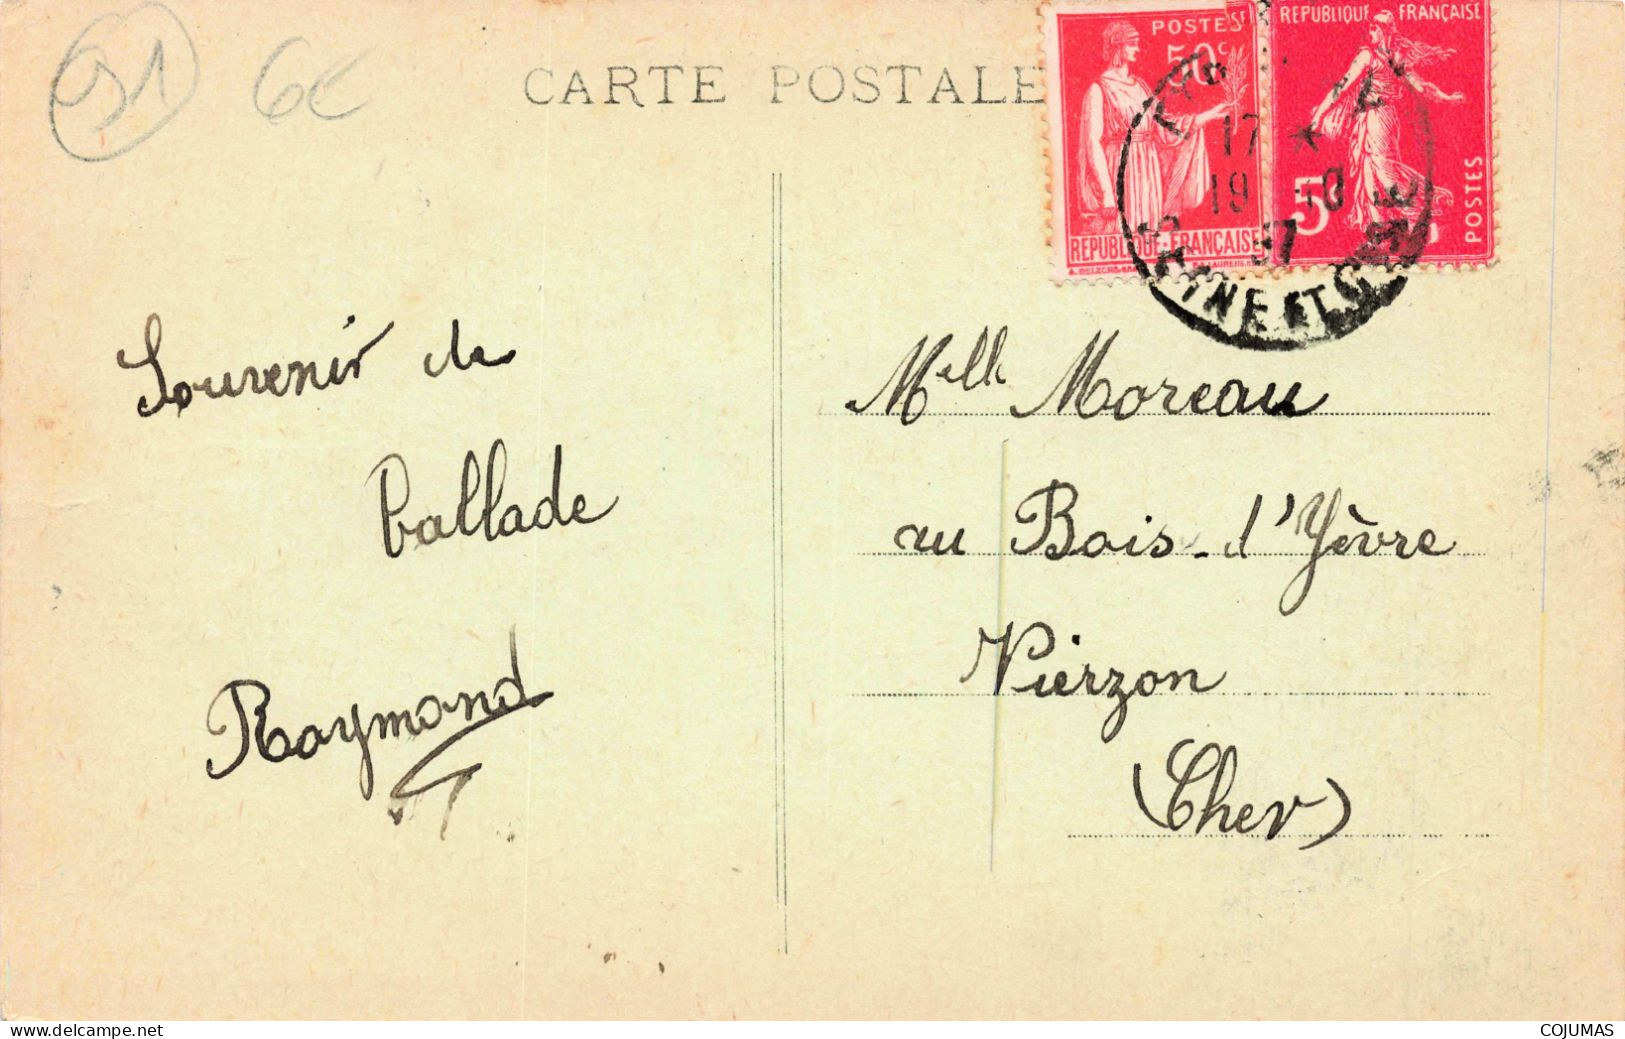 91 6€
CARTE POSTALE
POSTES
50c
REPUBLIQUE-FRANÇAISE
REPUBLIQUE FRANÇAISE
5c
POSTES
17 *
19 -10
37
SEINE ET OISE
Souvenir de
ballade
Raymond
Melle Moreau
au Bois-d'Yèvre
Vierzon
(Cher)
www.delcampe.net
COJUMAS